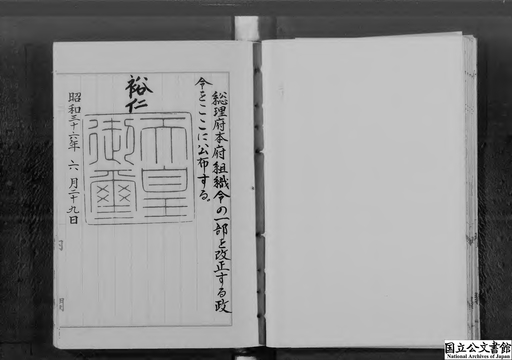 総理府本府組織令の一部を改正する政
令をここに公布する。
裕仁
天皇
御璽
昭和三十六年六月二十九日
国立公文書館
National Archives of Japan